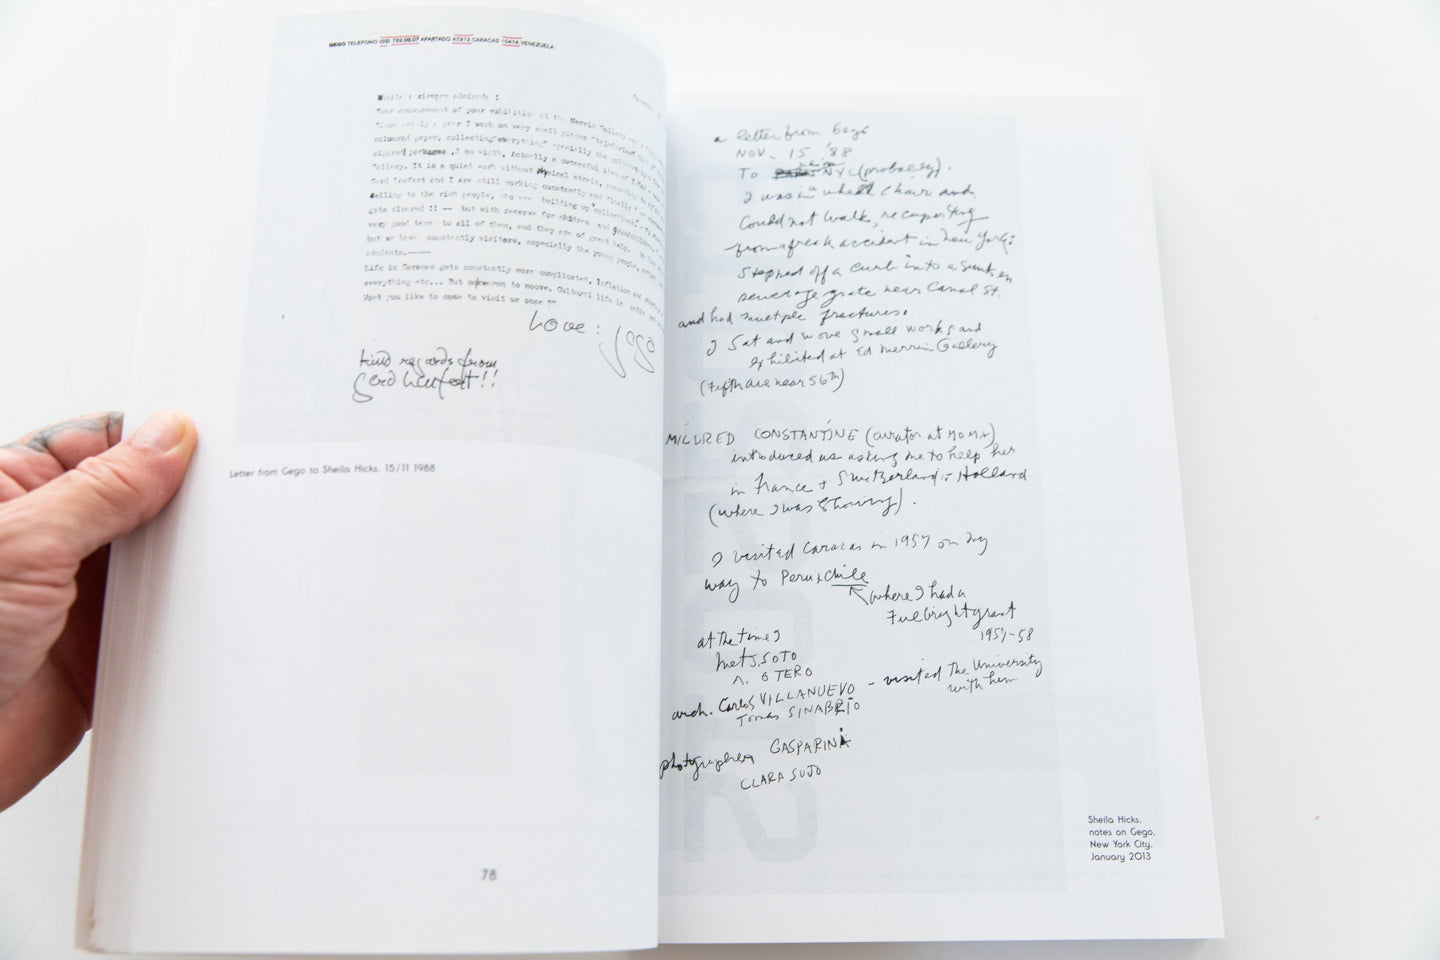 GEGO TELEFONO (02) 762.09.07 APARTADO 47912 CARACAS 1041A VENEZUELA
Sheila : siempre admirada !
Your announcement of your exhibition at the Merrin Gallery
Since nearly a year I work on very small pieces "tejeduras"
coloured paper, collecting "everything" specially the
cigaret packages ,2 mm width. Actually a succesful idea of
Gallery. It is a quiet work without physical strain,
Gerd Leufert and I are still working constantly and finally
selling to the rich people, who are building up "collections".
gets cleared !! -- but with reserve for children and grandchildren,
very good term to all of them, and they are of great help.
but we have constantly visitors, especially the young people,
students.-----
Life in Caracas gets constantly more complicated, inflation and
everything etc... But no reason to moove. Cultural life is
Wont you like to come to visit us once ??
Love: Gego
kind regards from
Gerd Leufert!!
Letter from Gego to Sheila Hicks, 15/11 1988
78
a letter from Gego
NOV. 15 '88
TO NYC (probably).
I was in a wheel chair and
could not walk, recuperating
from a freak accident in New York:
stepped off a curb into a sunken
sewerage grate near Canal St.
and had multple fractures.
I sat and wove small works and
exhibited at Ed Merrin Gallery
(Fifth Ave near 56th)
MILDRED CONSTANTINE (curator at MOMA)
introduced us asking me to help her
in France + Switzerland + Holland
(where I was showing).
I visited Caracas in 1957 on my
way to Peru + Chile
where I had a
Fulbright grant
1957-58
at the time I
met J. SOTO
A. OTERO
arch. Carlos VILLANUEVO - visited The University
with him
Tomas SINABRIO
photographer GASPARINI
CLARA SUJO
Sheila Hicks,
notes on Gego,
New York City,
January 2013